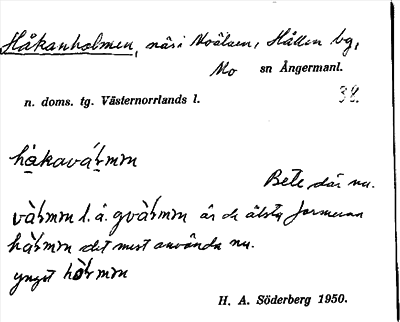 Håkanholmen, näs i Moälven, Hållen bg,
Mo sn Ångermanl.
n. doms. tg. Västernorrlands l.
38.
hå̀kavármm
Bete där nu.
vàrmm l. å. gvàrmm är de älsta formerna
hàrmm det mest använda nu.
yngst hòrmm
H. A. Söderberg 1950.